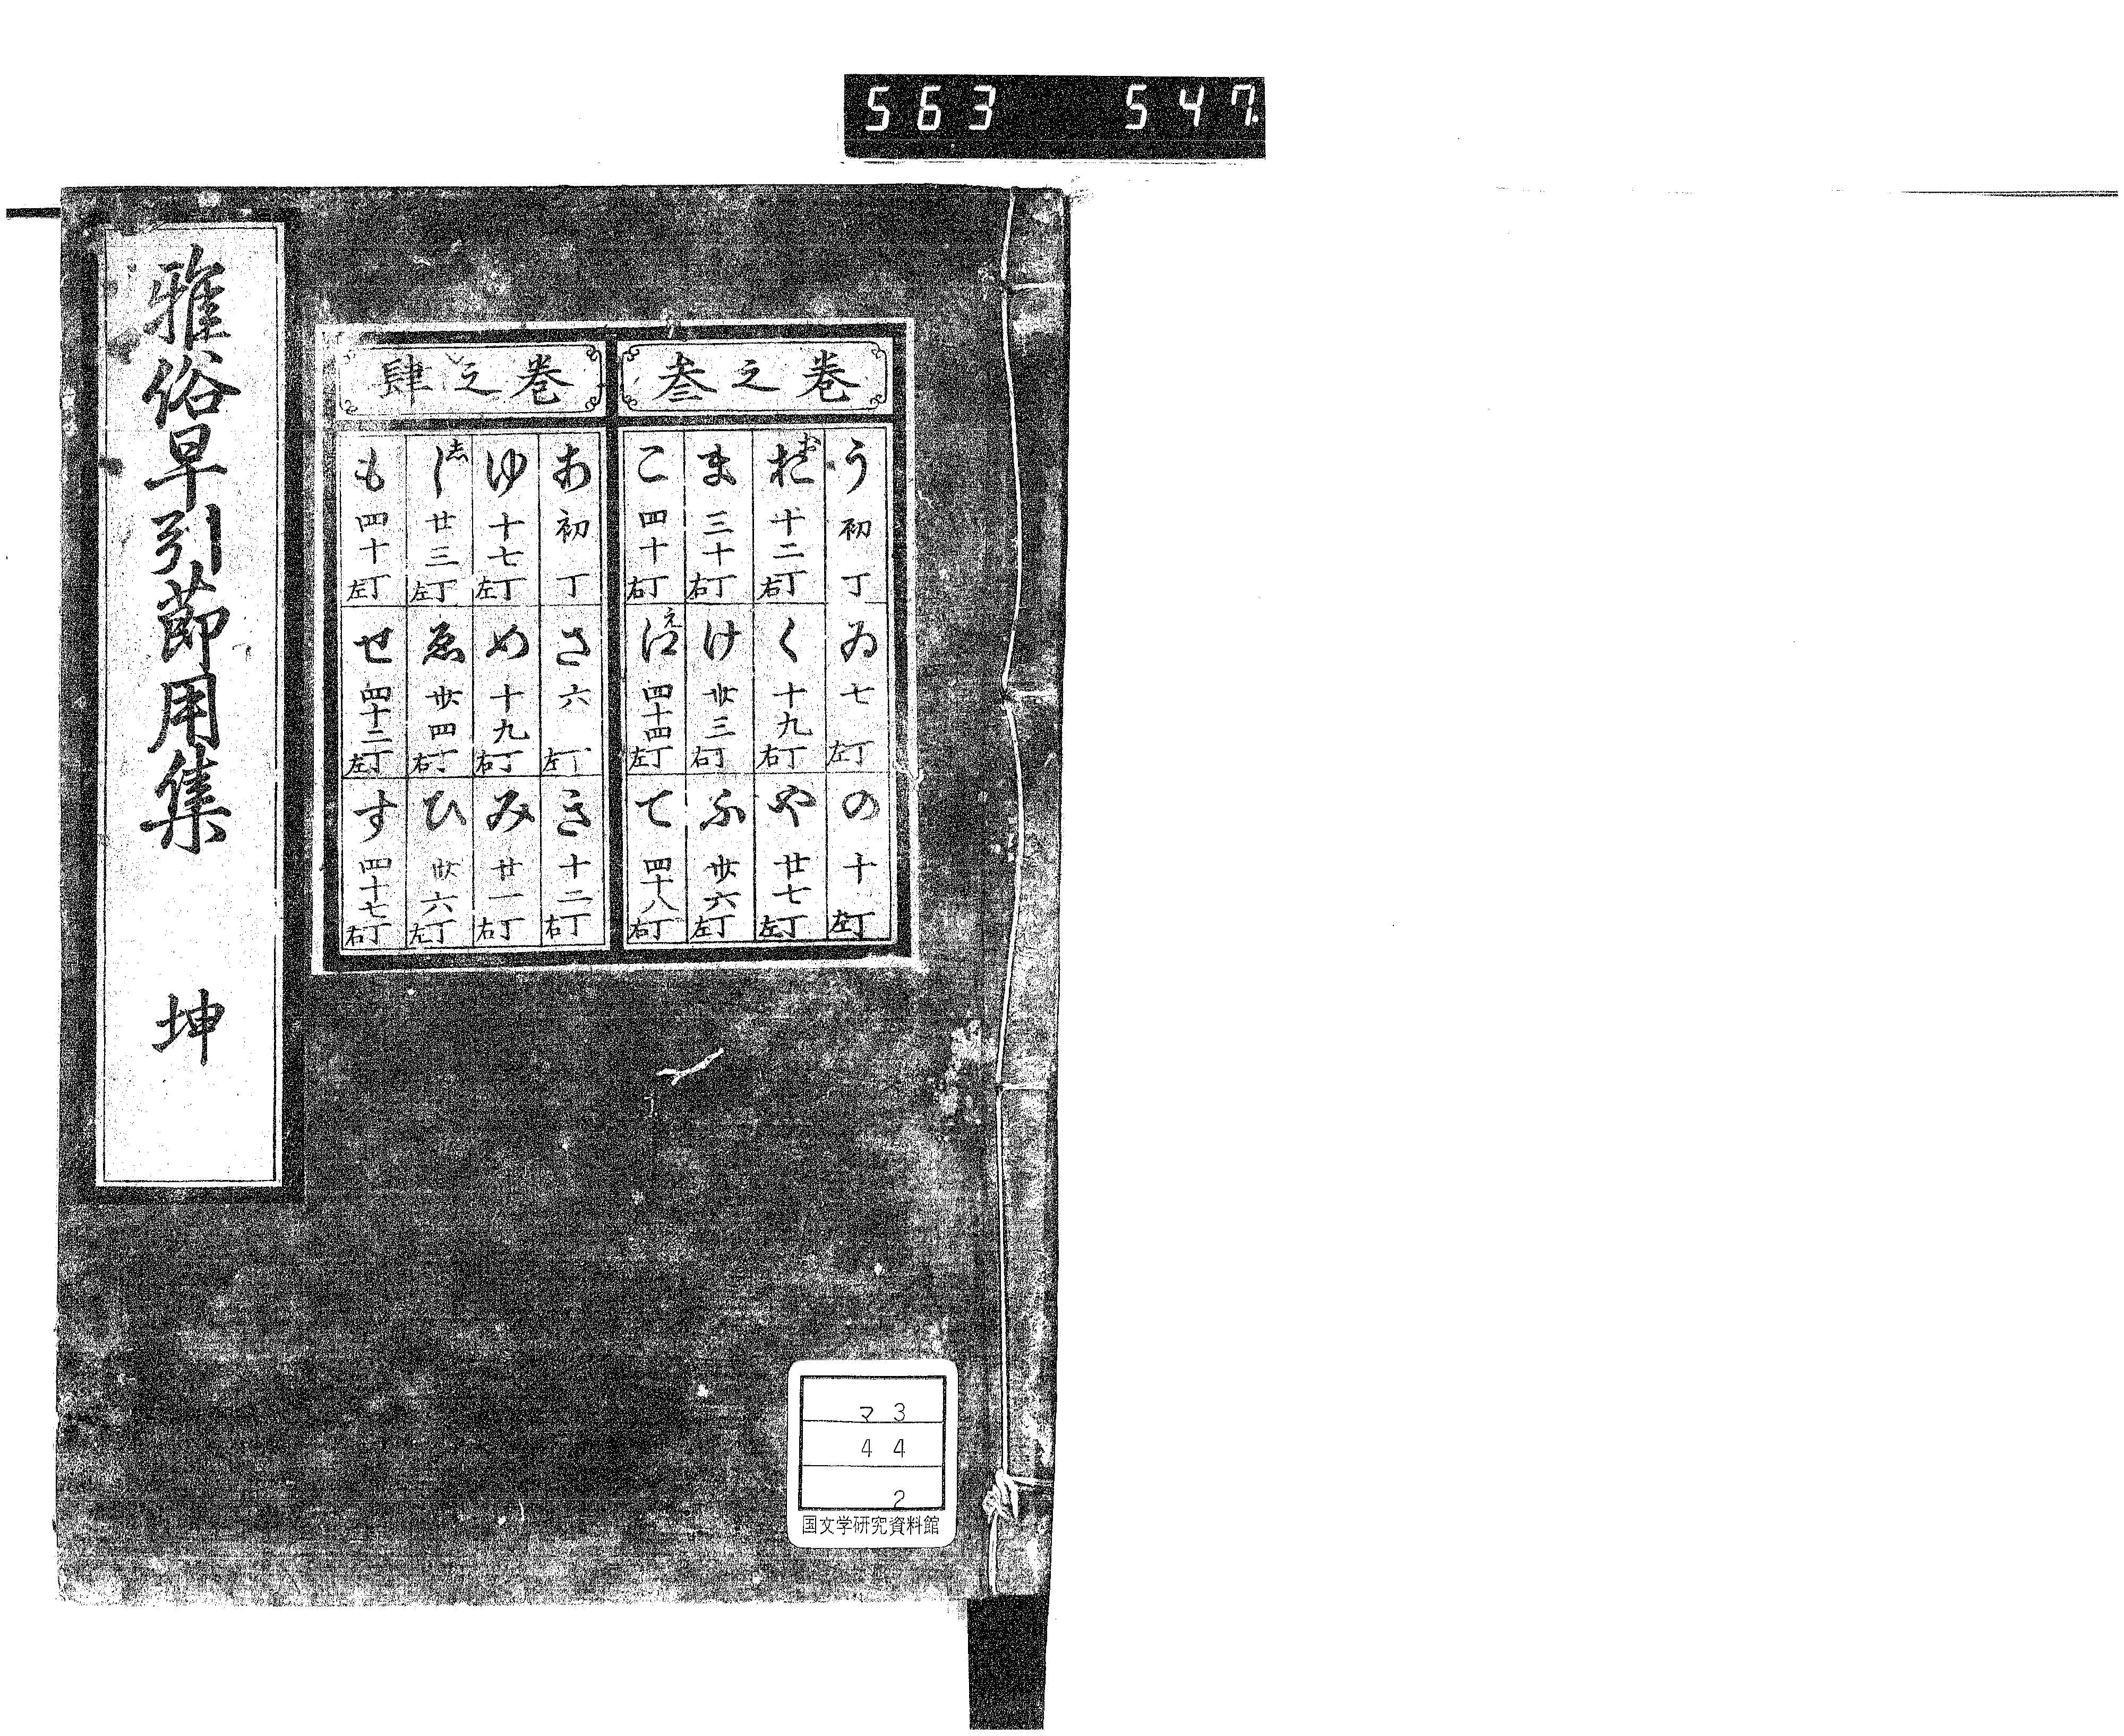 563 547
雅俗早引莭用集 坤
巻之叁
う 初丁
ゐ 七丁左
の 十丁左
お 十二丁右
く 十九丁右
や 廿七丁左
ま 三十丁右
け 卅三丁右
ふ 卅六丁左
こ 四十丁右
え 四十四丁左
て 四十八丁右
巻之肆
あ 初丁
さ 六丁左
き 十二丁右
ゆ 十七丁左
め 十九丁右
み 廿一丁右
し 廿三丁左
ゑ 卅四丁右
ひ 卅六丁左
も 四十丁左
せ 四十二丁左
す 四十七丁右
マ3
44
2
国文学研究資料館